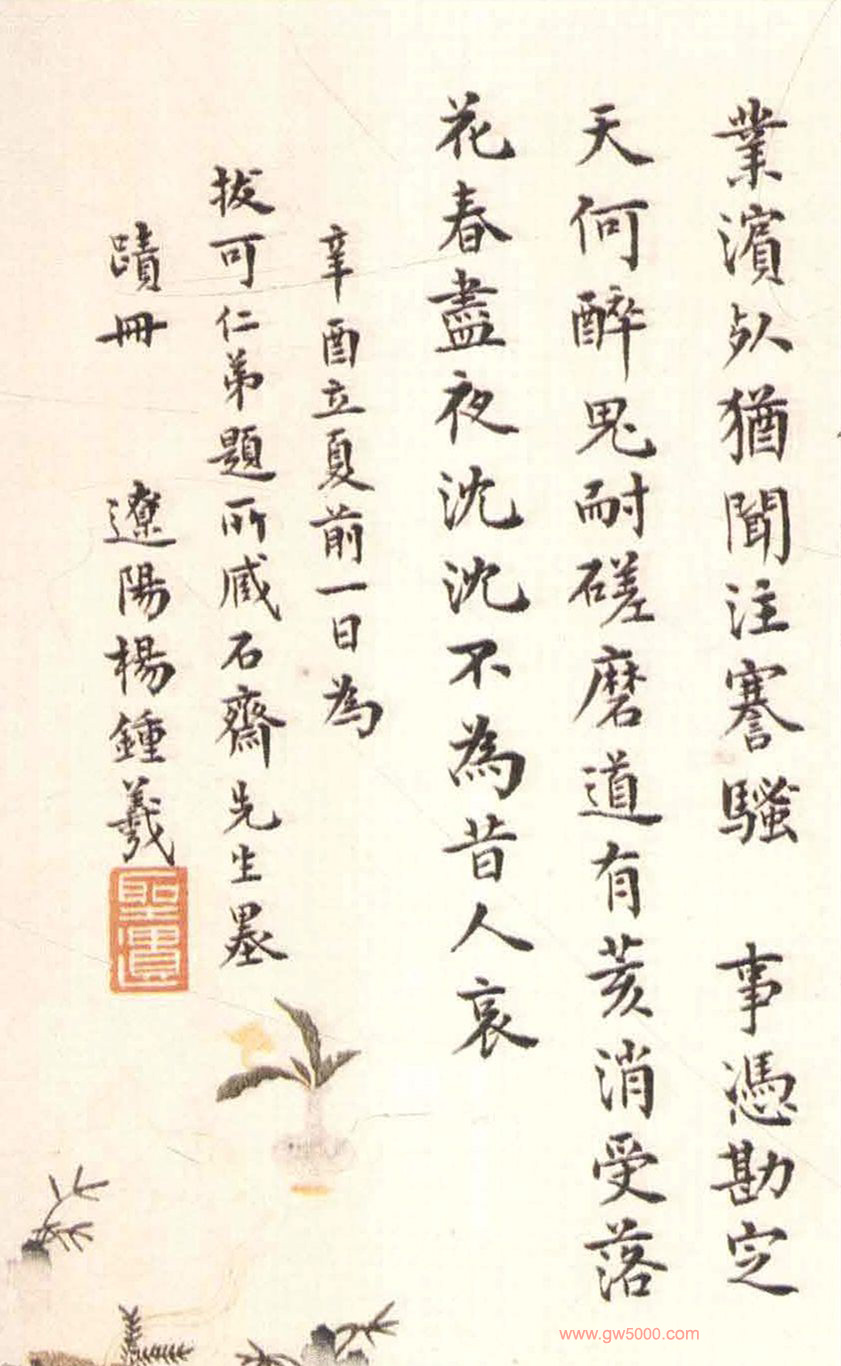 業濱死猶聞注謇騷　事憑勘定
天何醉鬼耐磋磨道有芰消受落
花春盡夜沈沈不為昔人哀
辛酉立夏前一日為
拔可仁弟題所臧石齋先生墨
蹟冊　遼陽楊鍾羲
聖遺
www.gw5000.com